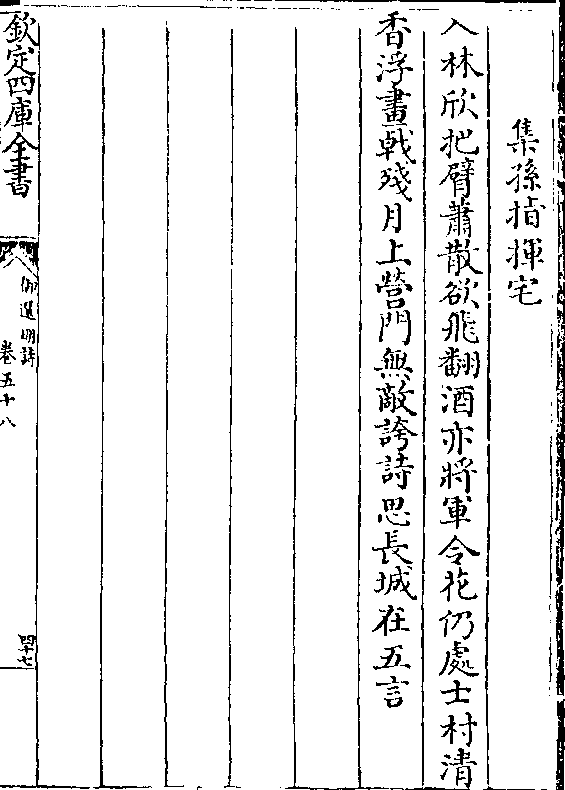 集孫指揮宅
入林欣把臂蕭散欲飛翻酒亦將軍令花仍處士村清
香浮畫㦸殘月上營門無敵誇詩思長城在五言
欽定四庫全書
御選明詩
卷五十八
四十七